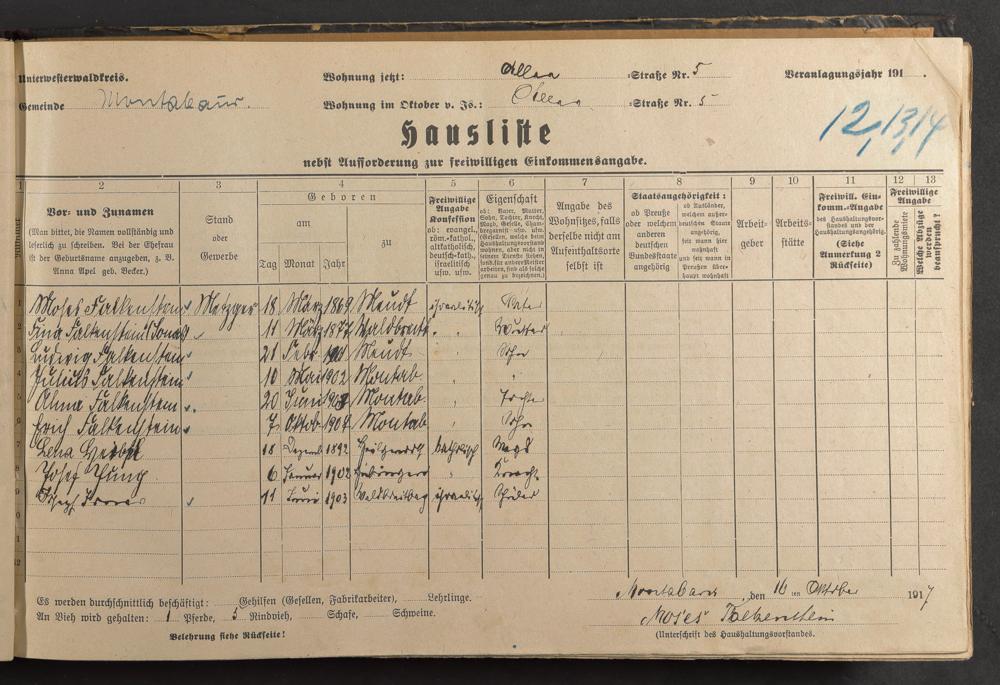 Unterwesterwaldkreis. Wohnung jetzt: Straße Nr. 5 Veranlagungsjahr 191 .
Gemeinde Montabaur. Wohnung im Oktober v. Js.: Straße Nr. 5
12, 13, 14
Hausliste
nebst Aufforderung zur freiwilligen Einkommensangabe.
1 2 3 4 5 6 7 8 9 10 11 12 13
Vor- und Zunamen
(Man bittet, die Namen vollständig und leserlich zu schreiben. Bei der Ehefrau ist der Geburtsname anzugeben, z. B. Anna Apel geb. Becker.)
Stand oder Gewerbe
Geboren
am
zu
Tag Monat Jahr
Freiwillige Angabe Konfession
ob: evangel., röm.-kathol., altkatholisch, deutsch-kath., israelitisch usw. usw.
Eigenschaft
Angabe des Wohnsitzes, falls derselbe nicht am Aufenthaltsorte selbst ist
Staatsangehörigkeit:
ob Preuße oder welchem anderen deutschen Bundesstaate angehörig
ob Ausländer, welchem außerdeutschen Staate angehörig, seit wann hier wohnhaft und seit wann in Preußen überhaupt wohnhaft
Arbeitgeber
Arbeitsstätte
Freiwill. Einkomm.-Angabe
des Haushaltungsvorstandes und der Haushaltungsangehörig.
(Siehe Anmerkung 2 Rückseite)
Freiwillige Angabe
Zu zahlende Wohnungsmiete
Welche Abzüge werden beansprucht?
1 Moses Falkenstein Metzger 18 März 1869 Meudt israelitisch Vater
2 Falkenstein 11 März 1877 Mutter
3 Ludwig Falkenstein 21 Febr. Meudt Sohn
4 Julius Falkenstein 10 Mai 1902 Montab. "
5 Falkenstein 20 Juni Montab. Tochter
6 Erich Falkenstein 7 Oktob. 1907 Montab. Sohn
7 Lena 18 Dezemb. 1892 katholisch Magd
8 Josef Jung 6 Januar 1902 " Knecht
9 Joseph 11 Juni 1903 israelitisch Schüler
10
11
12
Montabaur, den 16 ten Oktober 1917
Es werden durchschnittlich beschäftigt: Gehilfen (Gesellen, Fabrikarbeiter), Lehrlinge.
An Vieh wird gehalten: 1 Pferde, 5 Rindvieh, Schafe, Schweine.
Moses Falkenstein
(Unterschrift des Haushaltungsvorstandes.
Belehrung siehe Rückseite!